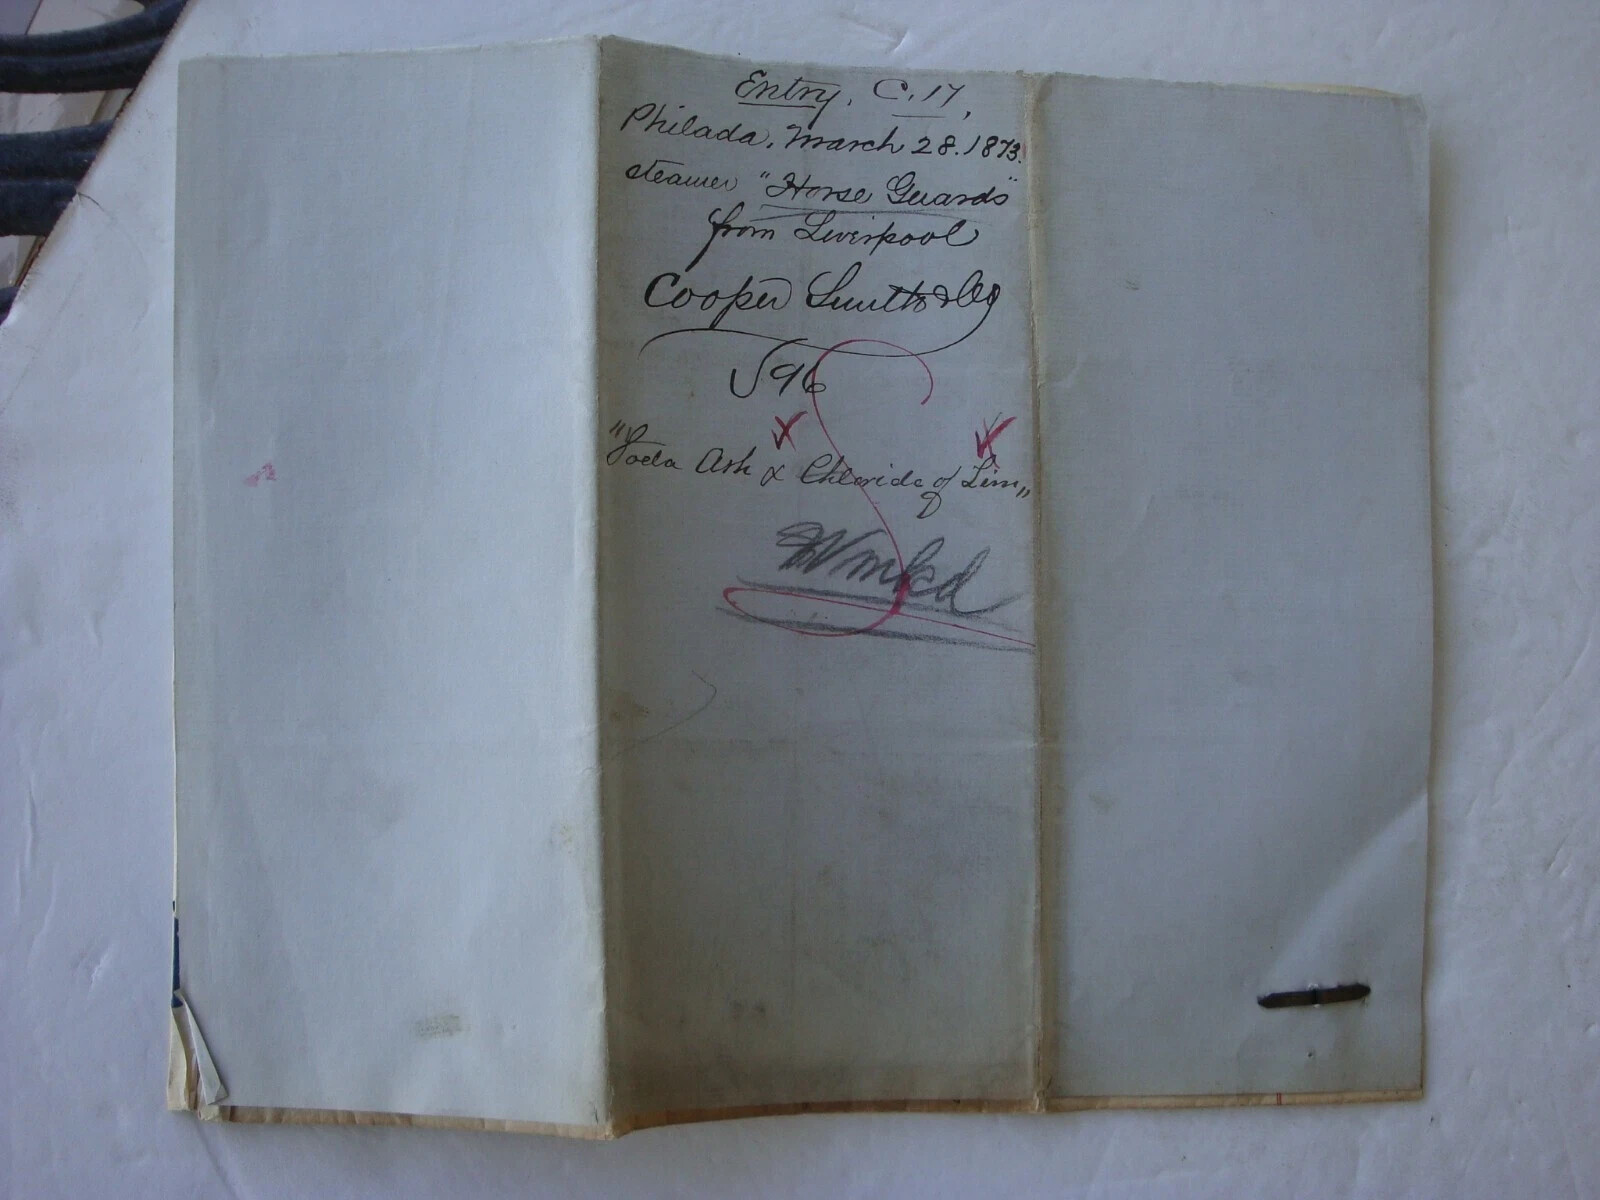 Entry, C. 17,
Philada, March 28. 1873.
steamer "Horse Guards"
from Liverpool
Cooper Smith & Co
√96
"Soda Ash & Chloride of Lim"
Wmkd